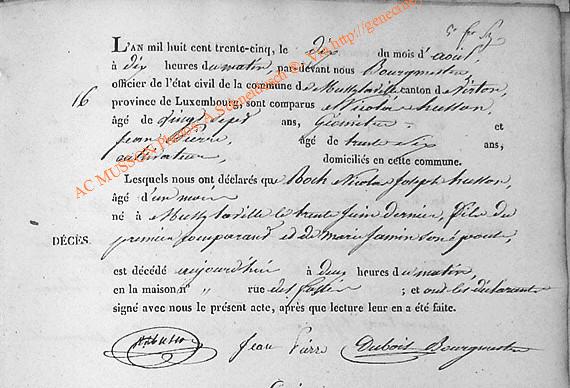 L'AN mil huit cent trente-cinq, le dix du mois d'aout,
à dix heures du matin, par-devant nous Bourgmestre,
officier de l'état civil de la commune de Mussy la ville canton de Virton,
16
province de Luxembourg, sont comparus Nicolas husson,
âgé de ans, Géomètre et
jean Pierre, âgé de trente six ans,
cultivateur, domiciliés en cette commune.
Lesquels nous ont déclarés que Roch Nicolas joseph husson,
âgé d'un mois
né à Mussy la ville le trente juin dernier, fils du
DÉCÈS.
premier comparant et de marie jamin son épouse,
est décédé aujourd'hui à deux heures du matin,
en la maison n° " rue des fossés ; et ont les déclarant
signé avec nous le présent acte, après que lecture leur en a été faite.
husson jean Pierre Dubois Bourgmestre
AC MUSSON Photos A Schneidesch © Via http://genecity